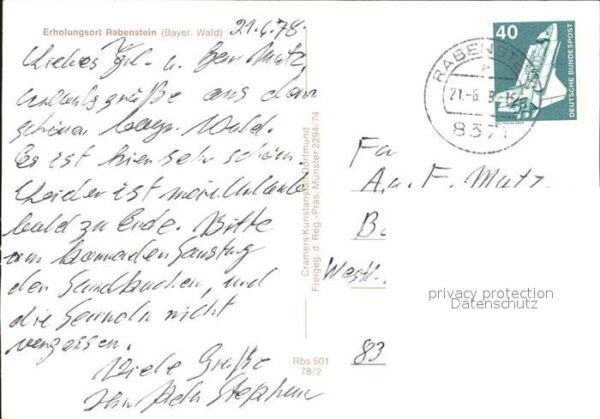 Erholungsort Rabenstein (Bayer. Wald)
21.6.78.
Liebes Frl. u. Herr Mutz
Urlaubsgrüße aus dem
schönen bayr. Wald.
Es ist hier sehr schön.
Leider ist mein Urlaub
bald zu Ende. Bitte
am kommenden Samstag
den Sandkuchen, und
die Semmeln nicht
vergessen.
Viele Grüße
Ihr
Cramers Kunstanstalt Dortmund
Freigeg. d. Reg.-Präs. Münster 2294/74
Rbs 501
78/2
40
DEUTSCHE BUNDESPOST
RABENST
21.-6.
8371
Fa
A. u. F. Mutz
B
Westl.
83
privacy protection
Datenschutz